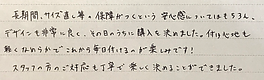 長期間、サイズ直し等の保障がつくという安心感についてはもちろん、
デザインも非常に良く、その日のうちに購入を決めました。付け心地も
軽くなめらかでこれから毎日付けるのが楽しみです!
スタッフの方のご対応も丁寧で楽しく決めることができました。